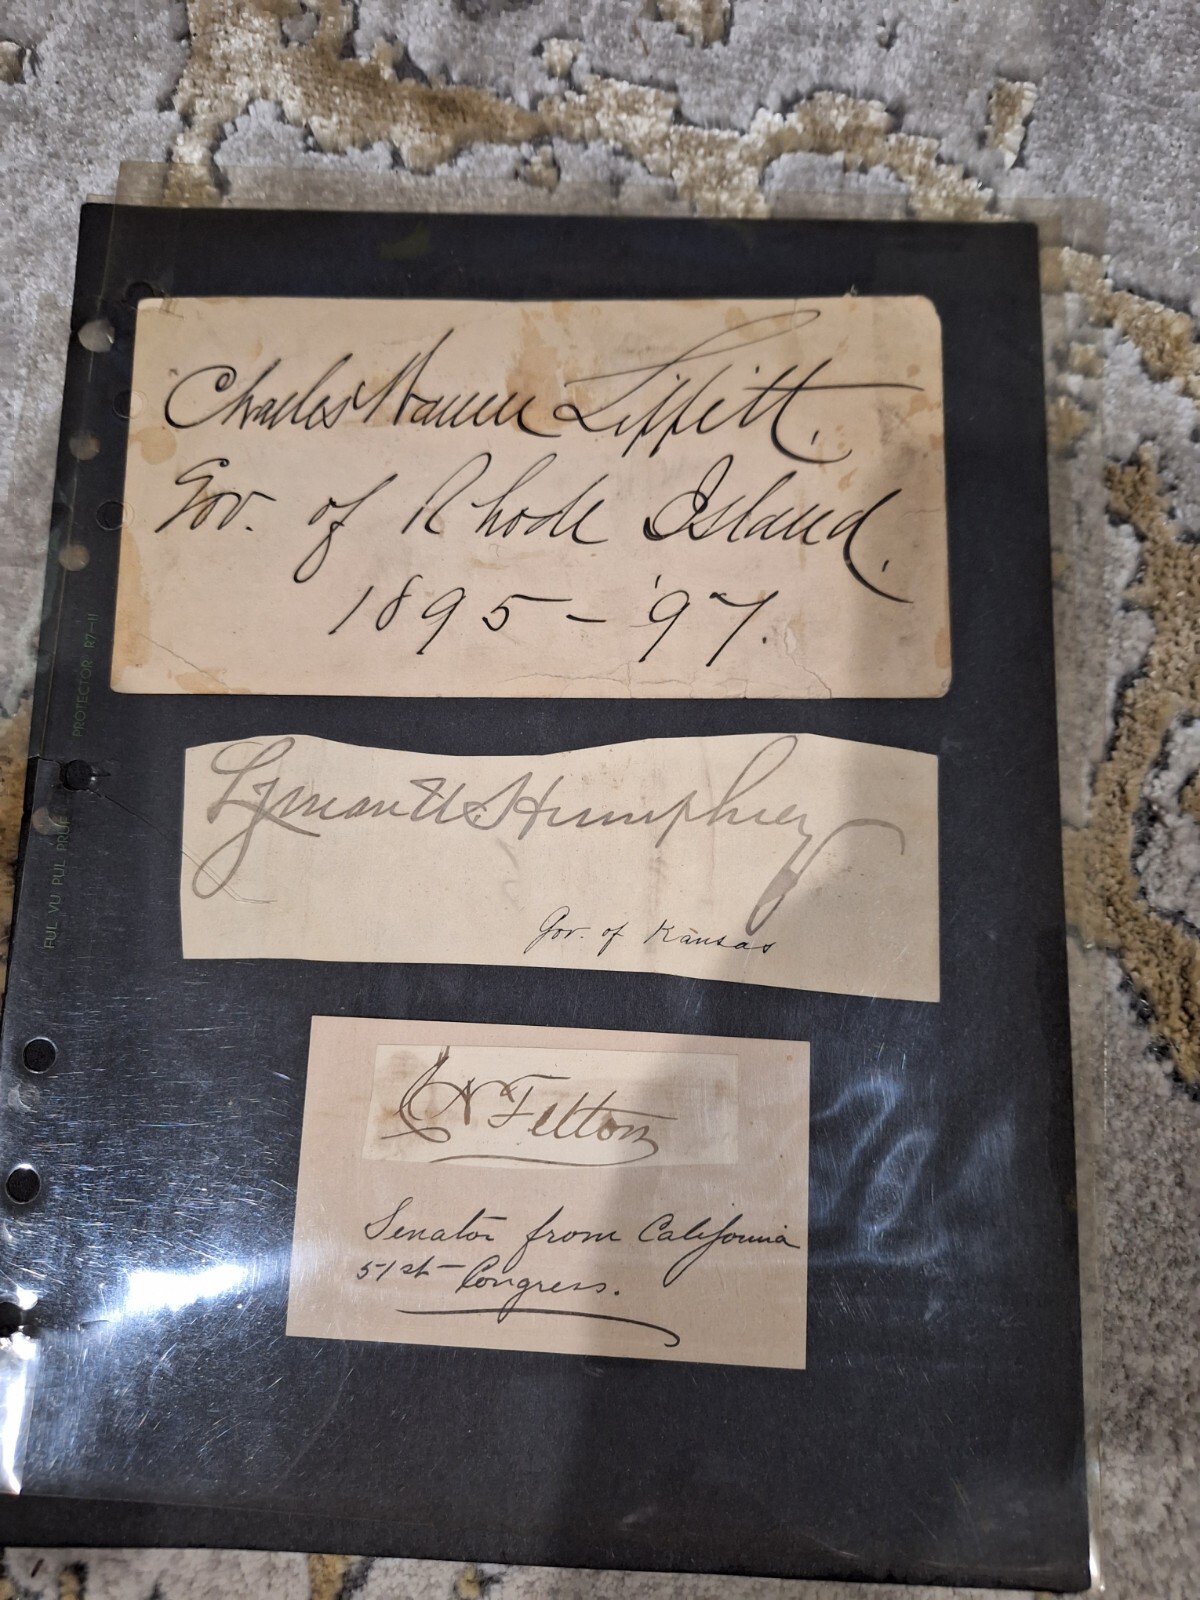 Charles Warren Lippitt.
Gov. of Rhode Island.
1895 - '97.
Lyman U. Humphrey
Gov. of Kansas
C N Felton
Senator from California
51st Congress.
PROTECTOR R7-11
FUL VU PUL PRUF